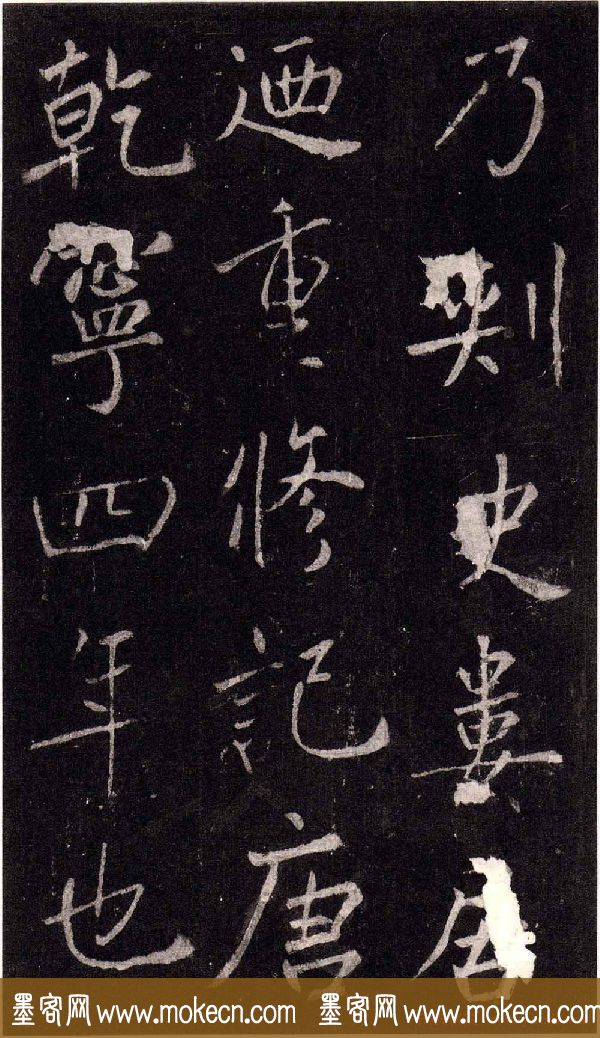 乃刺史婁
廼重修記唐
乾寧四年也
墨客网 www.mokecn.com 墨客网 www.mokecn.com